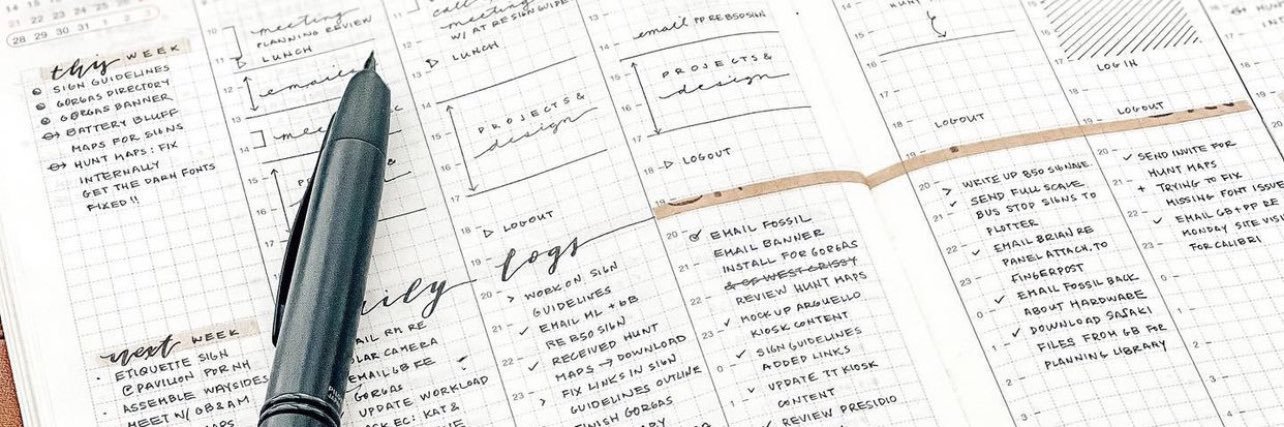 14 15
21 22 23 24
28 29 30 31 1 2 3
this WEEK
SIGN GUIDELINES
GORGAS DIRECTORY
GORGAS BANNER
BATTERY BLUFF
MAPS FOR SIGNS
HUNT MAPS: FIX
INTERNALLY
GET THE DARN FONTS
FIXED!!
next WEEK
ETIQUETTE SIGN
@ PAVILLON PDR NH
ASSEMBLE WAYSIDES
MEET W/ GB & AM
MAPS
10
meeting
PLANNING REVIEW
LUNCH
11
12
emails
13
14
15
16
17
RM RE
CAMERA
EMAIL GB RE
GORGAS
UPDATE WORKLOAD
EC: KAT &
11
meeting
W/ AT RE SIGN GUIDE
12
LUNCH
13
14
15
PROJECTS &
design
16
17
18
LOGOUT
19
logs
20
WORK ON SIGN
GUIDELINES
21
EMAIL ML + GB
RE B50 SIGN
22
RECEIVED HUNT
MAPS → DOWNLOAD
FIX LINKS IN SIGN
23
GUIDELINES OUTLINE
FINISH GORGAS
13
email PP RE B50 SIGN
14
15
PROJECTS &
design
16
17
18
LOGOUT
19
20
EMAIL FOSSIL
EMAIL BANNER
21
INSTALL FOR GORGAS
& GP WEST CRISSY
22
REVIEW HUNT MAPS
MOCK UP ARGUELLO
23
KIOSK CONTENT
SIGN GUIDELINES
0
ADDED LINKS
UPDATE TT KIOSK
1
CONTENT
REVIEW PRESIDIO
14
HUNT
15
16
17
18
LOGOUT
19
20
WRITE UP B50 SIGNAGE
SEND FULL SCALE
21
BUS STOP SIGNS TO
PLOTTER
22
EMAIL BRIAN RE
PANEL ATTACH. TO
23
FINGERPOST
EMAIL FOSSIL BACK
0
ABOUT HARDWARE
DOWNLOAD SASAKI
1
FILES FROM GB FOR
PLANNING LIBRARY
2
3
15
16
17
LOGIN
18
LOGOUT
19
20
SEND INVITE FOR
HUNT MAPS
21
+ TRYING TO FIX
MISSING FONT ISSUE
22
EMAIL GB + PP RE
MONDAY SITE VISIT
23
FOR CALIBRI
0
1
2
3
16
17
18
19